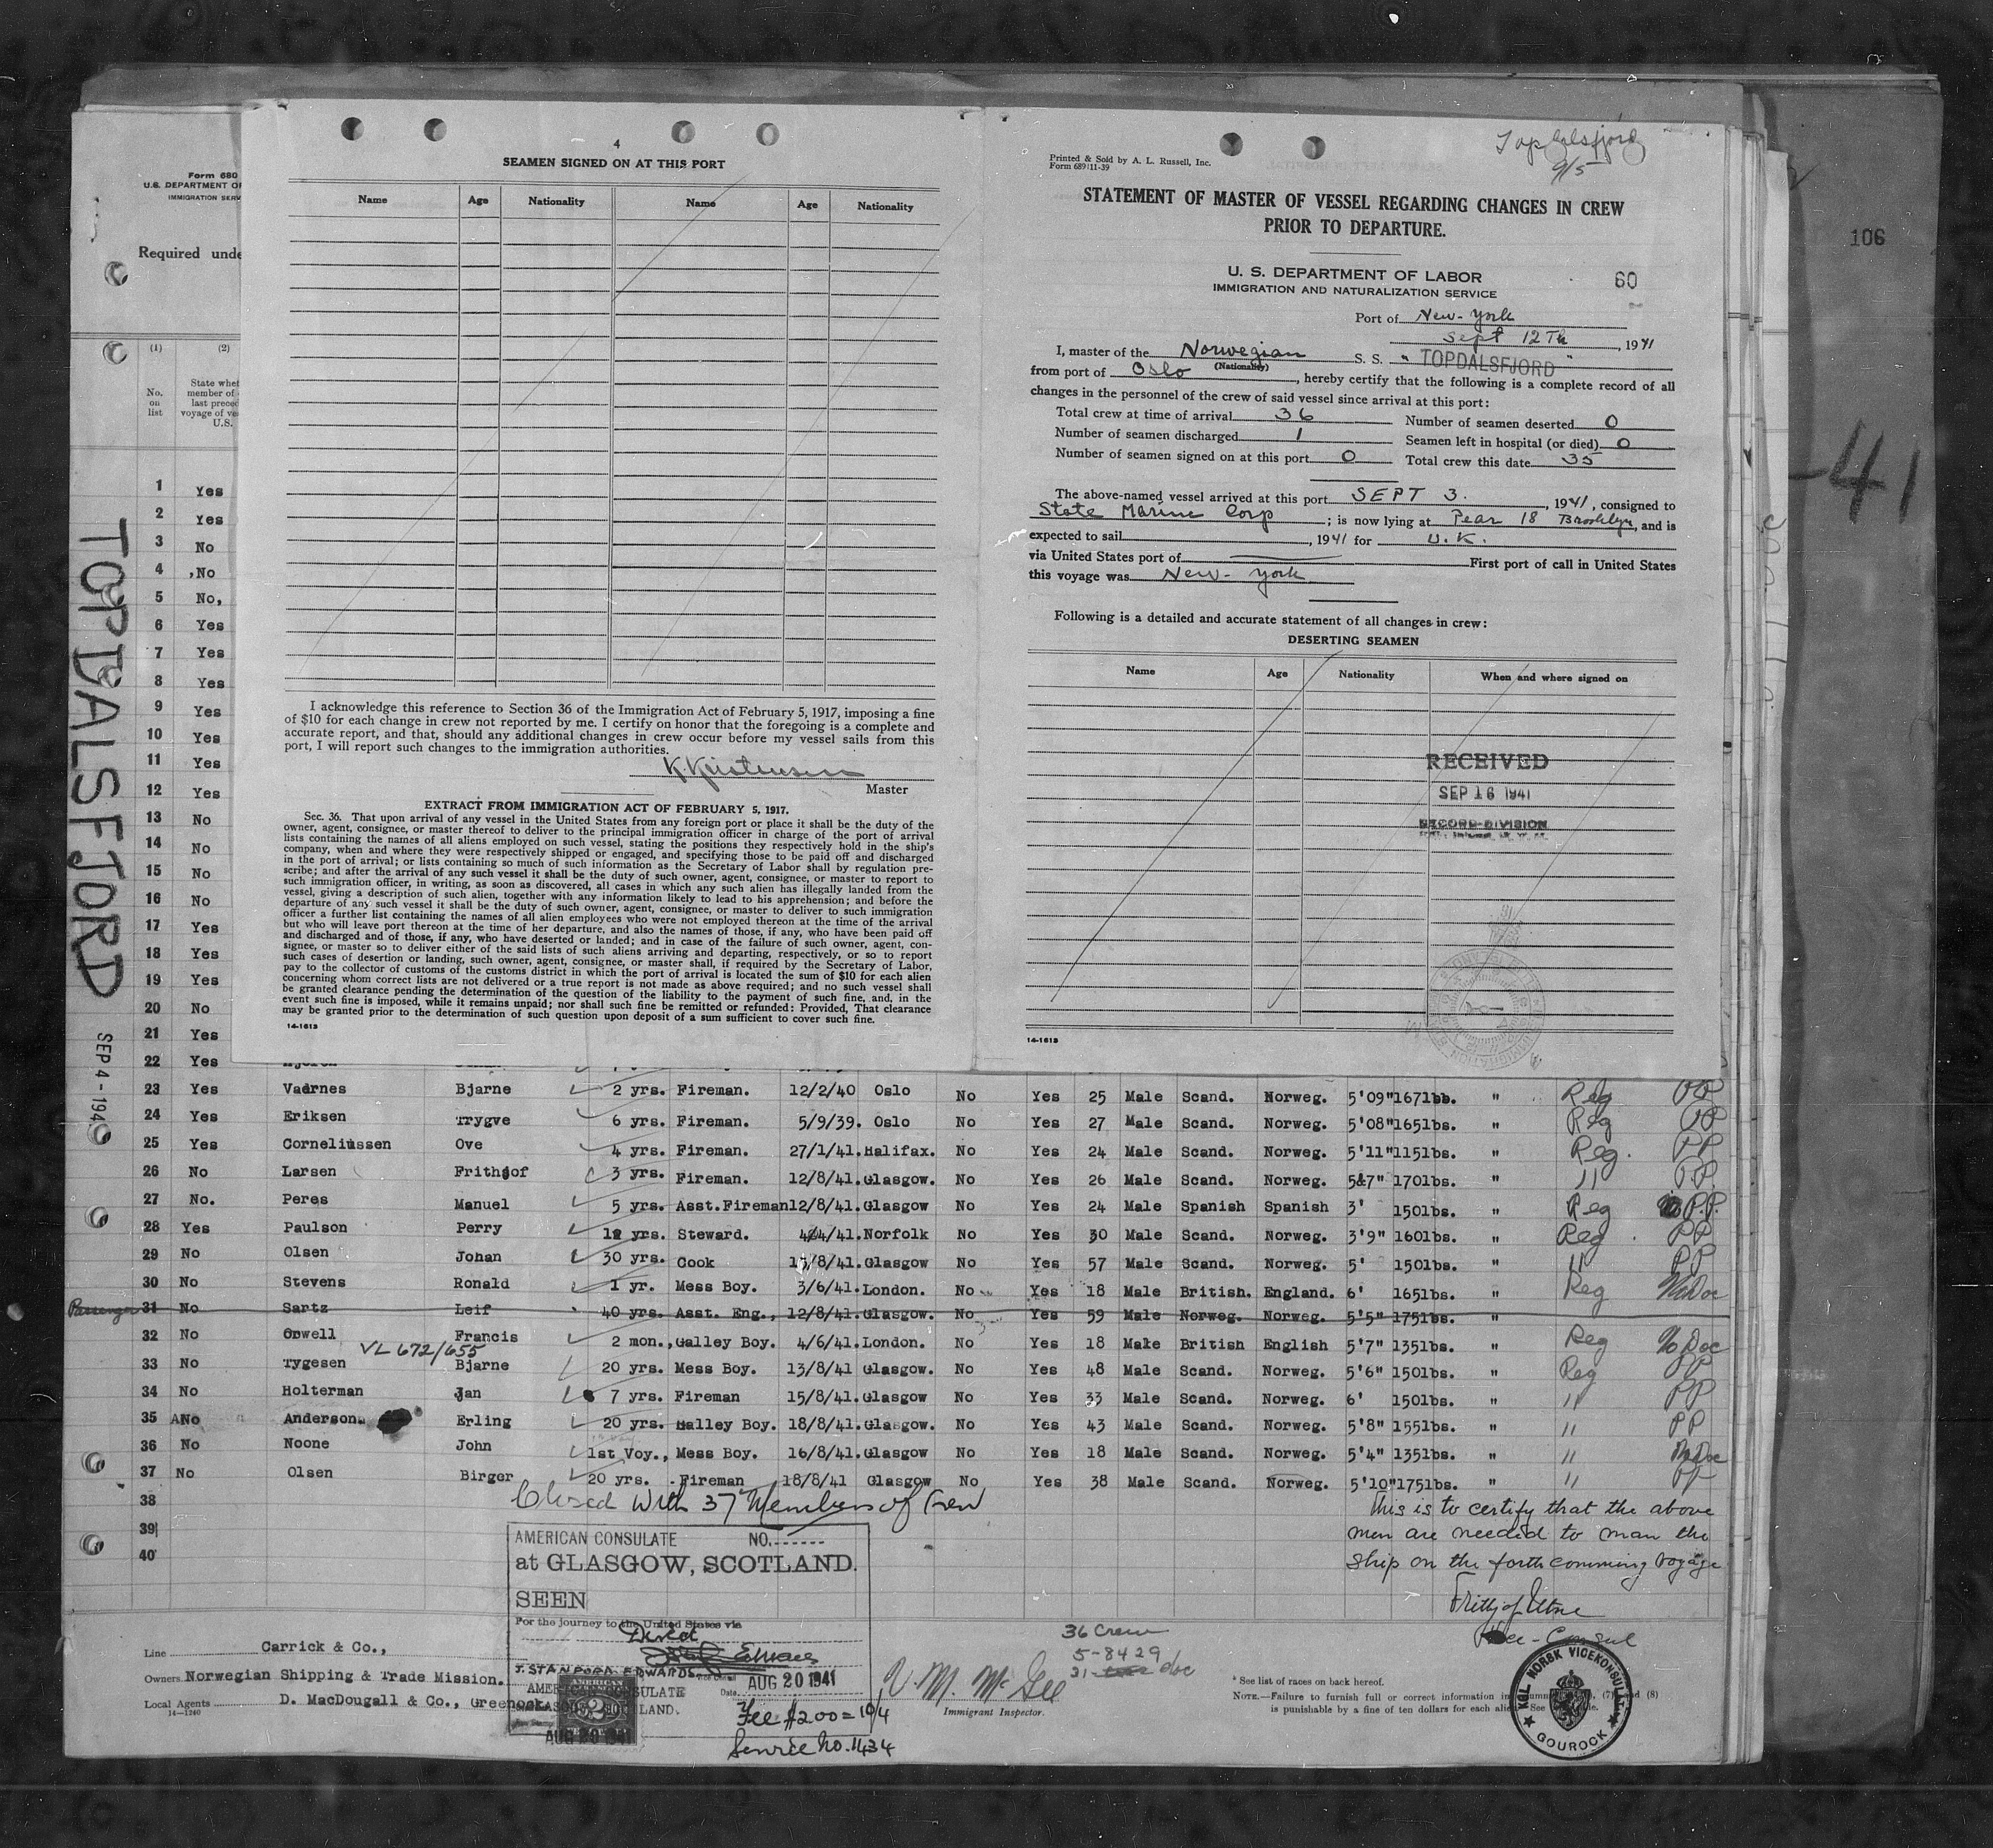 106
-41
TOPDALSFJORD
SEP 4 - 194
Form 680
U.S. DEPARTMENT OF
IMMIGRATION SERV
Required unde
(1) (2)
No. on list
State whet
member of
last preced
voyage of ve
U.S.
1 Yes
2 Yes
3 No
4 ,No
5 No,
6 Yes
7 Yes
8 Yes
9 Yes
10 Yes
11 Yes
12 Yes
13 No
14 No
15 No
16 No
17 Yes
18 Yes
19 Yes
20 No
21 Yes
22 Yes
4
SEAMEN SIGNED ON AT THIS PORT
Name Age Nationality Name Age Nationality
I acknowledge this reference to Section 36 of the Immigration Act of February 5, 1917, imposing a fine
of $10 for each change in crew not reported by me. I certify on honor that the foregoing is a complete and
accurate report, and that, should any additional changes in crew occur before my vessel sails from this
port, I will report such changes to the immigration authorities.
K. Kristensen
Master
EXTRACT FROM IMMIGRATION ACT OF FEBRUARY 5, 1917.
Sec. 36. That upon arrival of any vessel in the United States from any foreign port or place it shall be the duty of the
owner, agent, consignee, or master thereof to deliver to the principal immigration officer in charge of the port of arrival
lists containing the names of all aliens employed on such vessel, stating the positions they respectively hold in the ship's
company, when and where they were respectively shipped or engaged, and specifying those to be paid off and discharged
in the port of arrival; or lists containing so much of such information as the Secretary of Labor shall by regulation pre-
scribe; and after the arrival of any such vessel it shall be the duty of such owner, agent, consignee, or master to report to
such immigration officer, in writing, as soon as discovered, all cases in which any such alien has illegally landed from the
vessel, giving a description of such alien, together with any information likely to lead to his apprehension; and before the
departure of any such vessel it shall be the duty of such owner, agent, consignee, or master to deliver to such immigration
officer a further list containing the names of all alien employees who were not employed thereon at the time of the arrival
but who will leave port thereon at the time of her departure, and also the names of those, if any, who have been paid off
and discharged and of those, if any, who have deserted or landed; and in case of the failure of such owner, agent, con-
signee, or master so to deliver either of the said lists of such aliens arriving and departing, respectively, or so to report
such cases of desertion or landing, such owner, agent, consignee, or master shall, if required by the Secretary of Labor,
pay to the collector of customs of the customs district in which the port of arrival is located the sum of $10 for each alien
concerning whom correct lists are not delivered or a true report is not made as above required; and no such vessel shall
be granted clearance pending the determination of the question of the liability to the payment of such fine, and, in the
event such fine is imposed, while it remains unpaid; nor shall such fine be remitted or refunded: Provided, That clearance
may be granted prior to the determination of such question upon deposit of a sum sufficient to cover such fine.
14-1613
Topdalsfjord
9/5
Printed & Sold by A. L. Russell, Inc.
Form 689|11-39
STATEMENT OF MASTER OF VESSEL REGARDING CHANGES IN CREW
PRIOR TO DEPARTURE.
U. S. DEPARTMENT OF LABOR
IMMIGRATION AND NATURALIZATION SERVICE
60
Port of New-York
Sept 12Th, 1941
I, master of the Norwegian S. S. " TOPDALSFJORD "
(Nationality)
from port of Oslo, hereby certify that the following is a complete record of all
changes in the personnel of the crew of said vessel since arrival at this port:
Total crew at time of arrival 36 Number of seamen deserted 0
Number of seamen discharged 1 Seamen left in hospital (or died) 0
Number of seamen signed on at this port 0 Total crew this date 35
The above-named vessel arrived at this port SEPT 3., 1941, consigned to
State Marine Corp; is now lying at Pear 18 Brooklyn, and is
expected to sail, 1941 for U.K.
via United States port of First port of call in United States
this voyage was New-York
Following is a detailed and accurate statement of all changes in crew:
DESERTING SEAMEN
Name Age Nationality When and where signed on
RECEIVED
SEP 16 1941
RECORD-DIVISION
14-1613
23 Yes Vadrnes Bjarne 2 yrs. Fireman. 12/2/40 Oslo No Yes 25 Male Scand. Norweg. 5'09" 167lbs. " Reg PP
24 Yes Eriksen Trygve 6 yrs. Fireman. 5/9/39. Oslo No Yes 27 Male Scand. Norweg. 5'08" 165lbs. " Reg PP
25 Yes Corneliussen Ove 4 yrs. Fireman. 27/1/41. Halifax. No Yes 24 Male Scand. Norweg. 5'11" 115lbs. " Reg. PP
26 No Larsen Frithjof 3 yrs. Fireman. 12/8/41. Glasgow. No Yes 26 Male Scand. Norweg. 5&7" 170lbs. " " P.P.
27 No. Peres Manuel 5 yrs. Asst.Fireman 12/8/41. Glasgow No Yes 24 Male Spanish Spanish 3' 150lbs. " Reg P.P.
28 Yes Paulson Perry yrs. Steward. /41. Norfolk No Yes 30 Male Scand. Norweg. 3'9" 160lbs. " Reg PP
29 No Olsen Johan 30 yrs. Cook /8/41. Glasgow No Yes 57 Male Scand. Norweg. 5' 150lbs. " " PP
30 No Stevens Ronald 1 yr. Mess Boy. 3/6/41. London. No Yes 18 Male British. England. 6' 165lbs. " Reg No Doc
Passenger 31 No Sartz Leif 40 yrs. Asst. Eng., 12/8/41. Glasgow. No Yes 59 Male Norweg. Norweg. 5'5" 175lbs. "
32 No Orwell Francis 2 mon., Galley Boy. 4/6/41. London. No Yes 18 Make British English 5'7" 135lbs. " Reg No Doc
VL 672/655
33 No Tygesen Bjarne 20 yrs. Mess Boy. 13/8/41 Glasgow. No Yes 48 Male Scand. Norweg. 5'6" 150lbs. " Reg PP
34 No Holterman Jan 7 yrs. Fireman 15/8/41. Glasgow No Yes 33 Male Scand. Norweg. 6' 150lbs. " " PP
35 No Anderson. Erling 20 yrs. Galley Boy. 18/8/41. Glasgow. No Yes 43 Male Scand. Norweg. 5'8" 155lbs. " " PP
36 No Noone John 1st Voy., Mess Boy. 16/8/41. Glasgow No Yes 18 Male Scand. Norweg. 5'4" 135lbs. " " No Doc
37 No Olsen Birger 20 yrs. Fireman 18/8/41 Glasgow No Yes 38 Male Scand. Norweg. 5'10" 175lbs. " " PP
38
39
40
Closed With 37 Members of Crew
This is to certify that the above
men are needed to man the
ship on the forthcomming voyage
Vice-Consul
AMERICAN CONSULATE NO.
at GLASGOW, SCOTLAND.
SEEN
For the journey to the United States via
Direct
J. STANFORD EDWARDS
AMERICAN CONSULATE
GLASGOW, SCOTLAND.
Date AUG 20 1941
AUG 20 1941
Fee $2.00 = 10/4
Service No. 1434
Line Carrick & Co.,
Owners Norwegian Shipping & Trade Mission.
Local Agents D. MacDougall & Co., Greenock
14-1240
36 Crew
5-8429
31 doc
V. M. McGee
Immigrant Inspector.
* See list of races on back hereof.
NOTE.—Failure to furnish full or correct information in (7) and (8)
is punishable by a fine of ten dollars for each alien. See
KGL NORSK VICEKONSULAT
GOUROCK